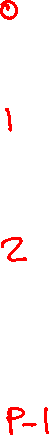 0
1
2
P-1